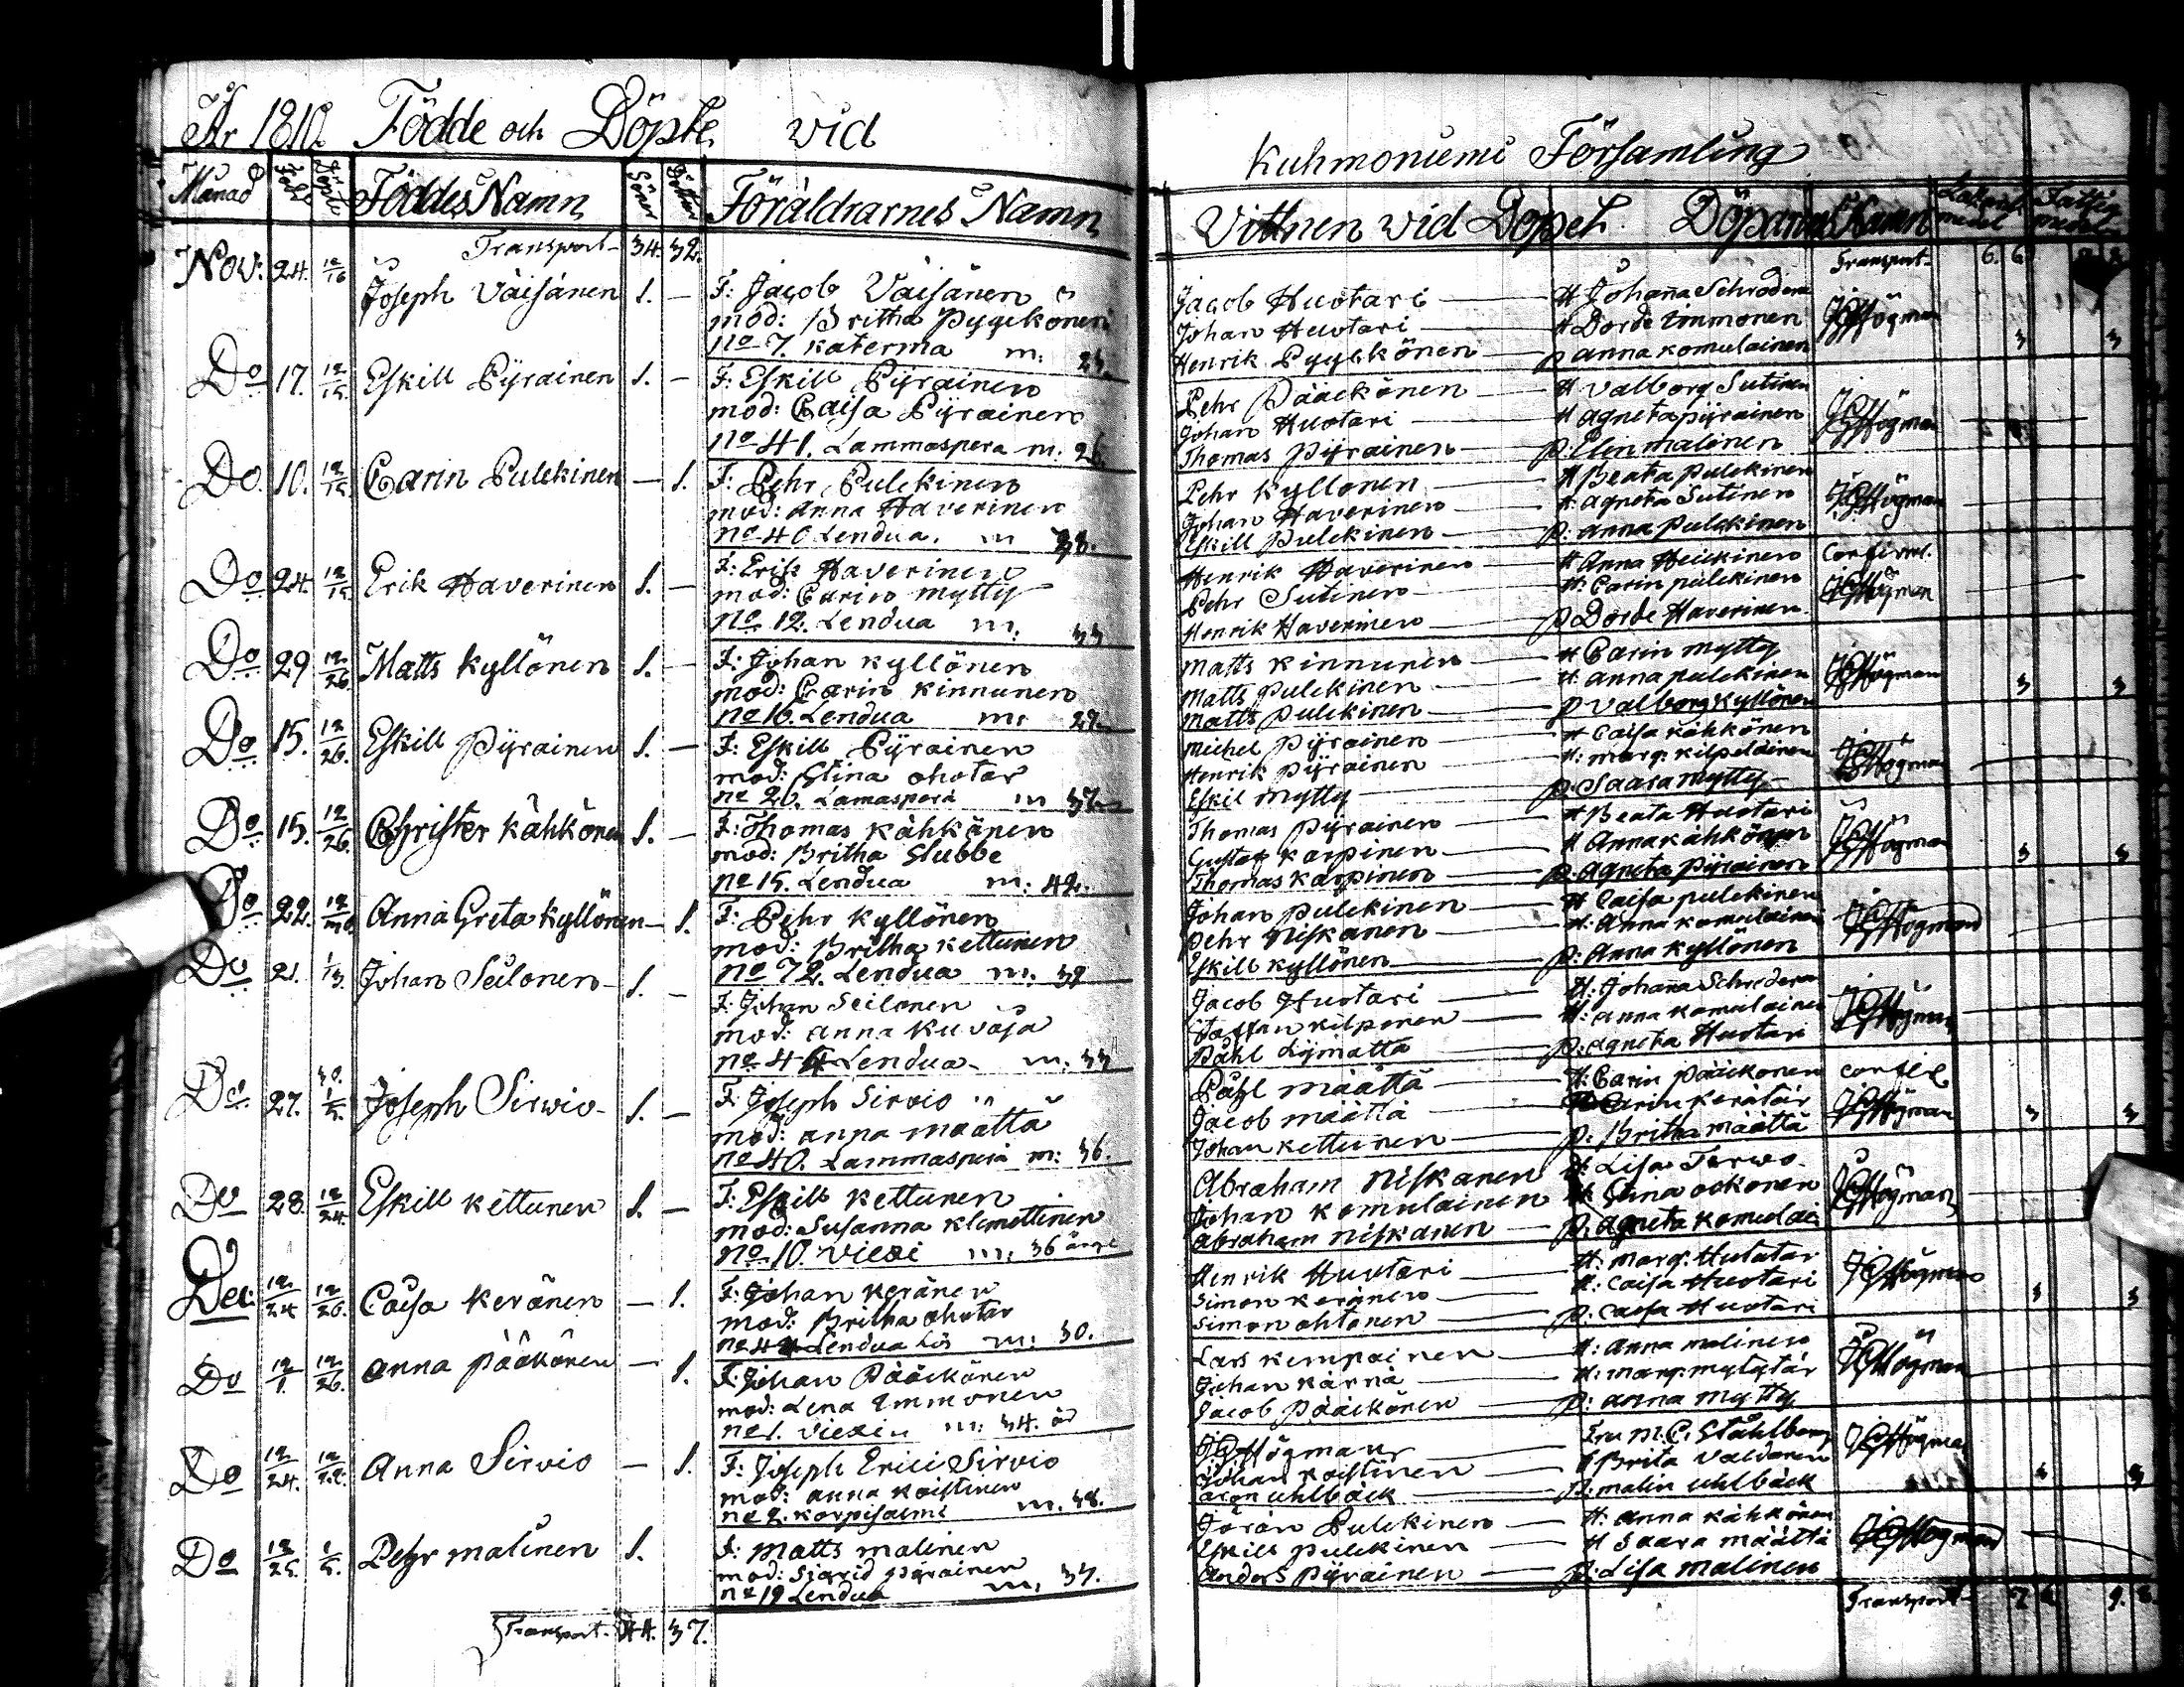 År 1810. Födde och Döpte vid
Månad Födde Döpte Föddes Namn Söner Döttrar Föräldrarnes Namn
Transport 34. 32.
Nov: 24. 12/16 Joseph Väisänen 1. — F: Jacob Väisänen
mod: Britha Pyyckönen
No 7. Katerma m: 24.
Do 17. 12/15. Eskill Pyrainen 1. — F: Eskill Pyrainen
mod: Caisa Pyrainen
No 41. Lammaspera m: 26.
Do. 10. 12/15. Carin Pulckinen — 1. F: Pehr Pulckinen
mod: Anna Haverinen
no 40 Lendua. m 38.
Do 24. 12/15. Erik Haverinen 1. — F: Erik Haverinen
mod: Carin Mytty
No 12. Lendua m: 33
Do 29 12/26. Matts Kyllönen 1. — F: Johan Kyllönen
mod: Carin Kinnunen
no 16. Lendua m: 27.
Do 15. 12/26. Eskill Pyrainen 1. — F: Eskill Pyrainen
mod: Stina ohotar
no 20. Lamaspera m 37.
Do 15. 12/26. Christer Kähkönen 1. — F: Thomas Kähkönen
mod: Britha Stubbe
no 15. Lendua m: 42.
Do 22. Anna Greta Kyllönen — 1. F: Pehr Kyllönen
mod: Britha Kettunen
no 72. Lendua m. 39
Do 21. 1/13. Johan Seilonen 1. — F: Johan Seilonen
mod: Anna Kuvaja
no 44 Lendua m. 33
Do 27. 30. 1/5. Joseph Sirvio 1. — F: Joseph Sirvio
mod: anna määttä
no 40. Lammasperä m: 36.
Do 28. 12/24. Eskill Kettunen 1. — F: Eskill Kettunen
mod: Susanna Klemettinen
no 10. Viexi m: 36
Dec: 12/24 12/26. Caisa Keränen — 1. F: Johan Keränen
mod: Britha ohotar
no 44 Lendua m: 30.
Do 12/1. 12/26. Anna Pääkönen — 1. F: Johan Pääckönen
mod: Lena Immonen
no 1. Viexin m: 34. år
Do 12/24. Anna Sirvio — 1. F: Joseph Erici Sirvio
mod: Anna Koistinen
no 2. Korpisalmi m. 38.
Do 12/25. 1/5. Pehr Malinen 1. F: Matts Malinen
mod: Sigrid Pyrainen
no 19 Lendua m. 37.
Transport. 44. 37.
Kuhmoniemi Församling
Vittnen vid Dopet Döparens Namn
Transport 6. 6.
Jacob Huotari — H Johanna Schrodera
Johan Huotari — H Dorde Immonen JHögman 3 3
Henrik Pyyckönen — p Anna Komulainen
Pehr Pääckönen — H Valborg Sutinen
Johan Huotari — H Agneta Pyrainen JHögman
Thomas Pyrainen — p. Elin Malinen
Pehr Kyllonen — H Beata Pulckinen
Johan Haverinen — H. Agneta Sutinen JHögman
Eskill Pulckinen — p: Anna Pulckinen
Henrik Haverinen — H Anna Heickinen
Pehr Sutinen — H: Carin Pulckinen JHögman
Henrik Haverinen — p Dorde Haverinen
Matts Kinnunen — H Carin Mytty
Matts Pulckinen — H Anna Pulckinen JHögman 3 3
Matts Pulckinen — p Valborg Kyllönen
Michel Pyrainen — H Caisa Kähkönen
Henrik Pyrainen — H: Marg: Kilpelainen JHögman
Eskil Mytty — p. Saara Mytty
Thomas Pyrainen — H Beata Huotari
Gustaf Karpinen — H Anna Kähkönen JHögman 3 3
Thomas Karpinen — p. Agneta Pyrainen
Johan Pulckinen — H Caisa Pulckinen
Pehr Niskanen — H: Anna Komulainen JHögman
Eskill Kyllönen — p: Anna Kyllönen
Jacob Huotari — H: Johanna Schrodera
Staffan Kilponen — H: Anna Komulainen JHögman
Påhl Lijmatta — p: Agneta Huotari
Påhl Määttä — H: Carin Pääckönen
Jacob Määttä — H Carin Kerätär JHögman 3 3
Johan Kettunen — p. Britha Määttä
Abraham Niskanen H: Lisa Terwo
Johan Komulainen H Stina ockonen JHögman
Abraham Niskanen — p: Agneta Komulai
Henrik Huotari — H: Marg: Hutatar
Simon Keränen — H: Caisa Huotari JHögman 3 3
Simon ohtonen — p: Caisa Huotari
Lars Kempainen — H: Anna Malinen
Johan Kärnä — H: Marg: Mytytär JHögman
Jacob Pääckönen — p: Anna Mytty
JHögman — Fru M.C. Ståhlberg
Johan Koistinen — H Brita Valdanen JHögman 3 3
Aron Uhlbäck — p: Malin Uhlbäck
Jöran Pulckinen — H: Anna Kähkönen
Eskill Pulckinen — H Saara Määttä JHögman
Anders Pyrainen — p: Lisa Malinen
Transport